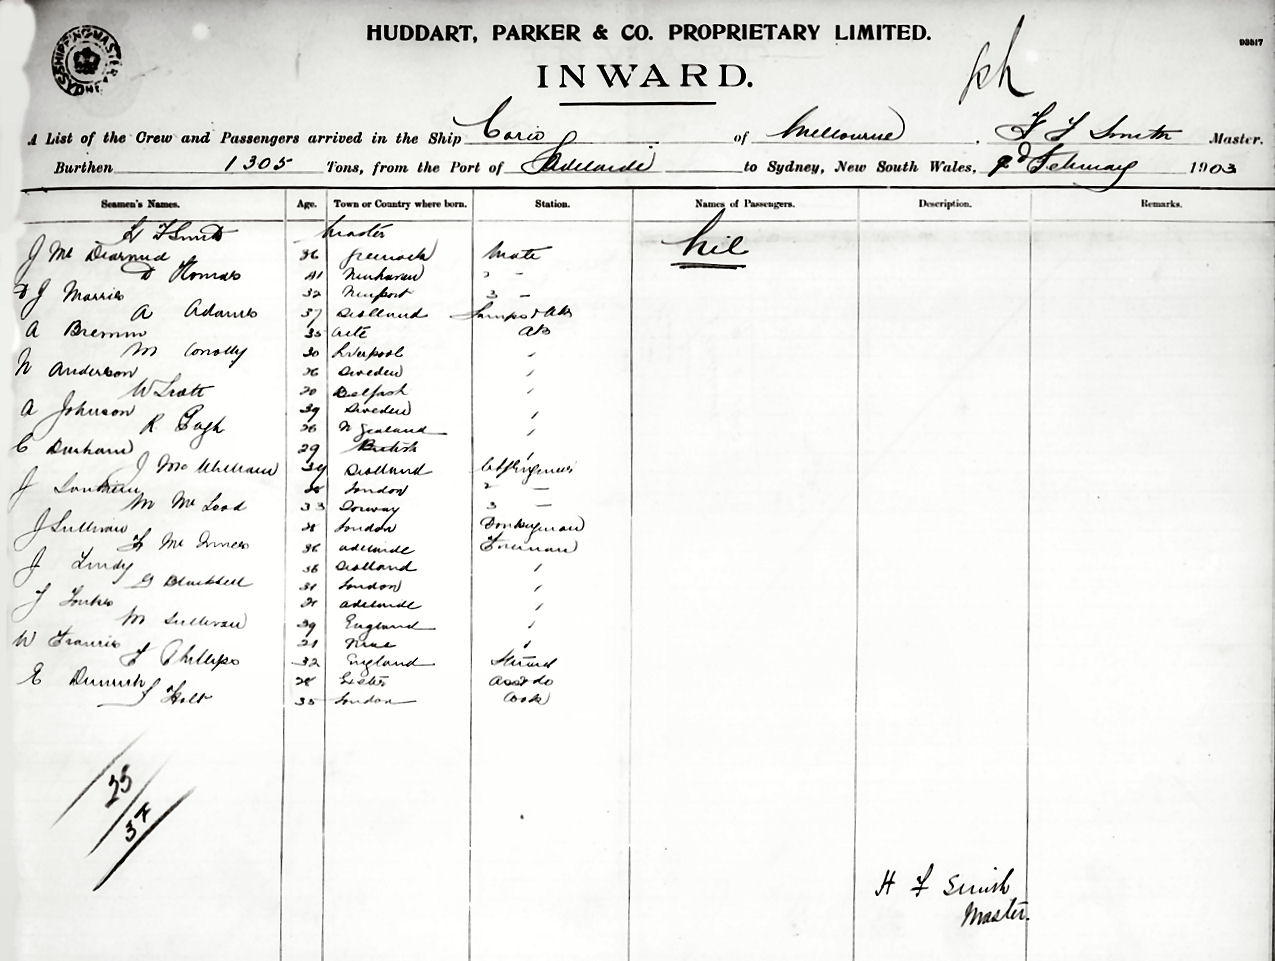 HUDDART, PARKER & CO. PROPRIETARY LIMITED.
93517
INWARD.
SHIPPING MASTER SYDNEY
A List of the Crew and Passengers arrived in the Ship Corio of Melbourne, H F Smith Master.
Burthen 1305 Tons, from the Port of Adelaide to Sydney, New South Wales, 2d February 1903
Seamen's Names. Age. Town or Country where born. Station. Names of Passengers. Description. Remarks.
H F Smith Master
Nil
J Mc Diarmid 36 Greenock Mate
D Thomas 41 Newhaven 2 -
D J Morris 32 Newport 3 -
A Adams 37 Scotland Lamps & Abs
A 35 Abs
M Conolly 30 Liverpool "
N Anderson 26 Sweden "
W Scott 20 Belfast "
A Johnson 39 Sweden "
R Pugh 26 N Zealand "
C Durham 29 British "
J Mc 39 Scotland Chf Engineer
J London 2 -
M Mc Leod 33 Norway 3 -
J Sullivan London Donkeyman
F Mc Innes 36 Adelaide Fireman
J Lundy 36 Scotland "
G 31 London "
J 21 Adelaide "
M Sullivan 39 England "
W Francis 21 "
F Phillips 32 England Steward
E Exeter Asst do
J Holt 35 London Cook
25
37
H F Smith
Master.